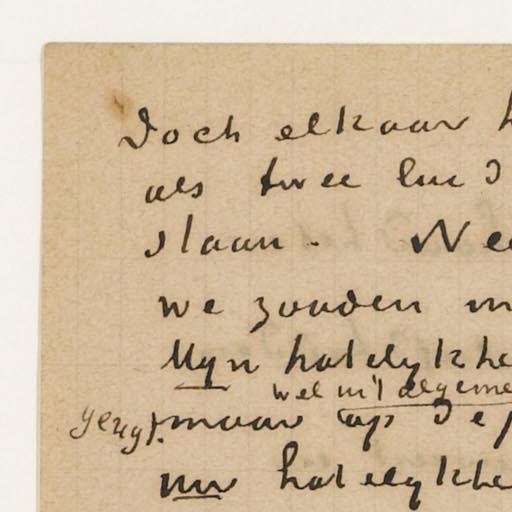 Doch elkaar
als twee lui d
slaan. Nee
we zouden m
Myn hatelykhe
wel in't algeme
gezegd. maar op de
uw hatelykhe